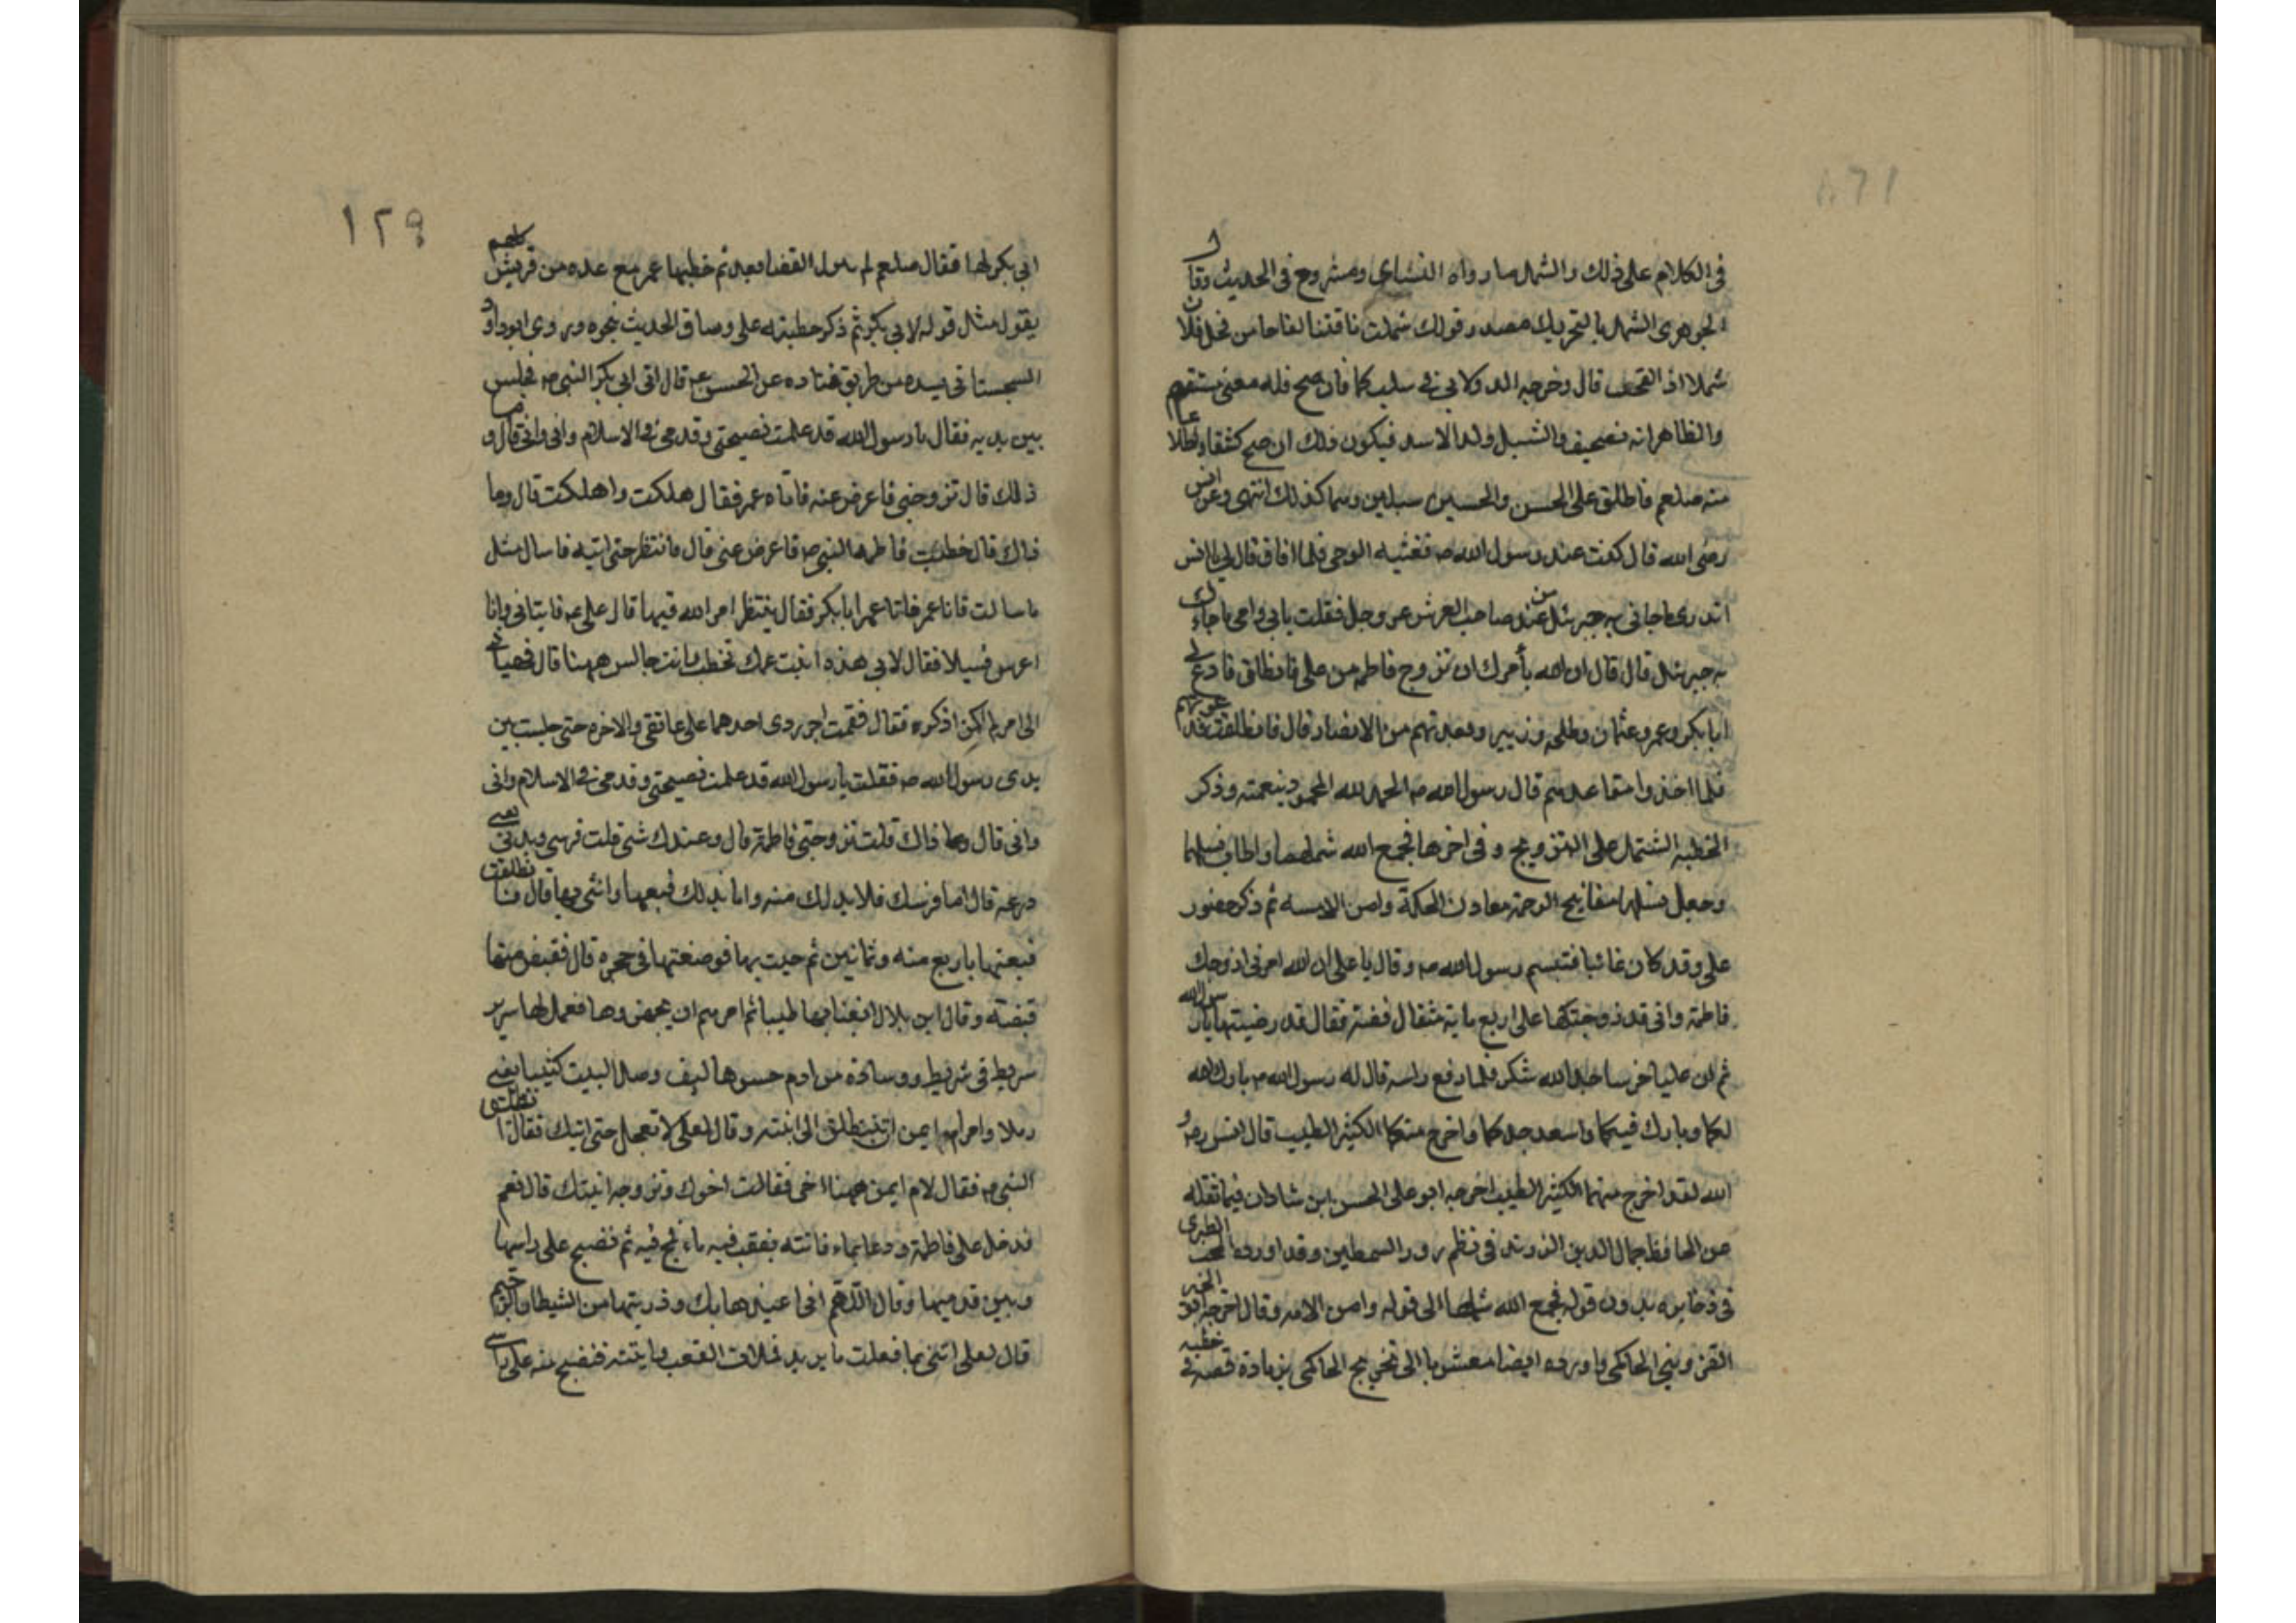 في الكلام على ذلك والشمل ما رواه النسائى ومشروح فى الحديث وقال
الجوهرى الشمل بالتحريك مصدر قولك شملت ناقتنا لقاحا من فحل فلان
شملا اذا لقحت قال وخرجه الدولابي في سلبكما فان صح فله معنى مستقيم
والظاهر انه تصحيف والشبل ولد الاسد فيكون ذلك ان صح كشفا واطلاعا
منه صلعم فاطلق على الحسن والحسين سبلين وسما كذلك انتهى وعن انس
رضى الله قال كنت عند رسول الله ص فغشيه الوحى فلما افاق قال لي يا انس
اتدرى ما جانى به جبرئيل من عند صاحب العرش عز وجل فقلت بابي وامى ما جاءك
به جبرئيل قال قال ان الله يأمرك ان تزوج فاطمه من على فانطلق فادع لى
ابا بكر وعمر وعثمان وطلحه وزبير وبعدتهم من الانصار قال فانطلقت فدعوتهم
فلما اخذوا مقاعدهم قال رسول الله ص الحمد لله المحمود بنعمته وذكر
الخطبه المشتمل على التزويج وفى اخرها فجمع الله شملهما واطاب نسلهما
وجعل نسلهما مفاتيح الرحمة معادن الحكمة وامن الامه ثم ذكر حضور
على وقد كان غائبا فتبسم رسول الله ص وقال يا على ان الله امرنى ازوجك
فاطمة وانى قد زوجتكها على اربع ماية مثقال فضة فقال قد رضيتها يا رسول الله
ثم ان عليا خر ساجدا لله شكر فلما رفع راسه قال له رسول الله ص بارك الله
لكما وبارك فيكما واسعد جدكما واخرج منكما الكثير الطيب قال انس رض و
الله لقد اخرج منهما الكثير الطيب اخرجه ابو على الحسن ابن شاذان فيما نقله
عن الحافظ جمال الدين الزرندى فى نظم درر السمطين وقد اورده المحب الطبرى
فى ذخايره بدون قوله فجمع الله شملهما الى قوله وامن الامه وقال اخرجه ابو الخير
القزوينى الحاكمى واورده ايضا معشر با الى تخريج الحاكمى بزيادة قصة فى خطبه
١٢٩
ابى بكر لها فقال صلعم لم ينزل القضا بعد ثم خطبها عمر مع عده من قريش كلهم
يقول مثل قوله لابي بكر ثم ذكر خطبته على وساق الحديث بنحوه وروى ابو داود
السجستانى بسنده من طريق قتاده عن الحسن عن قال اتى ابى بكر النبى ص فجلس
بين يديه فقال يا رسول الله قد علمت نصيحتى وقدمى في الاسلام وانى وانى قال وما
ذلك قال تزوجنى فاعرض عنه فاتاه عمر فقال هلكت واهلكت قال وما
ذاك قال خطبت فاطمه النبى ص فاعرض عنى قال فانتظر حتى اتيه فاسال مثل
ما سالت فاتا عمر فاتا عمر ابا بكر فقال ينتظر امر الله فيها قال على ع فاتيانى وانا
اعرس فسيلا فقال لابى هذه ابنت عمك تخطب وانت جالس ههنا قال فهيجانى
الى امر لم اكن اذكره فقال فقمت اجر ردى احدهما على عاتقى والاخره حتى جلست بين
يدى رسول الله ص فقلت يا رسول الله قد علمت نصيحتى وقدمى فى الاسلام وانى
وانى قال وما ذاك قلت تزوجنى فاطمة قال وعندك شى قلت فرسى وبدنى يعنى
درعه قال اما فرسك فلابد لك منه واما بدلك فبعها واتنى بها قال فانطلقت
فبعتها باربع مئه وثمانين ثم جيت بها فوضعتها فى حجره قال فقبض منها
قبضة وقال اين بلال ابغنا بها طيبا ثم امرهم ان يجهزوها فعمل لها سرير
شريط فى شريط ووسادة من ادم حسوها ليف وملا البيت كثيبا يعنى
رملا وامر ام ايمن ان تنطلق الى ابنته وقال لعلى لا تعجل حتى اتيك فقال انطلق
النبى ص فقال لام ايمن ههنا اخى فقالت اخوك وتزوجه ابنتك قال نعم
فدخل على فاطمة ودعا بماء فاتته بقعب فيه ماء فمج فيه ثم نضح على راسها
وبين قدميها وقال اللهم انى اعيذها بك وذريتها من الشيطان الرجيم
قال لعلى اتنى بما فعلت ما يريد فملات القعب واتيته فنضح منه على راسى